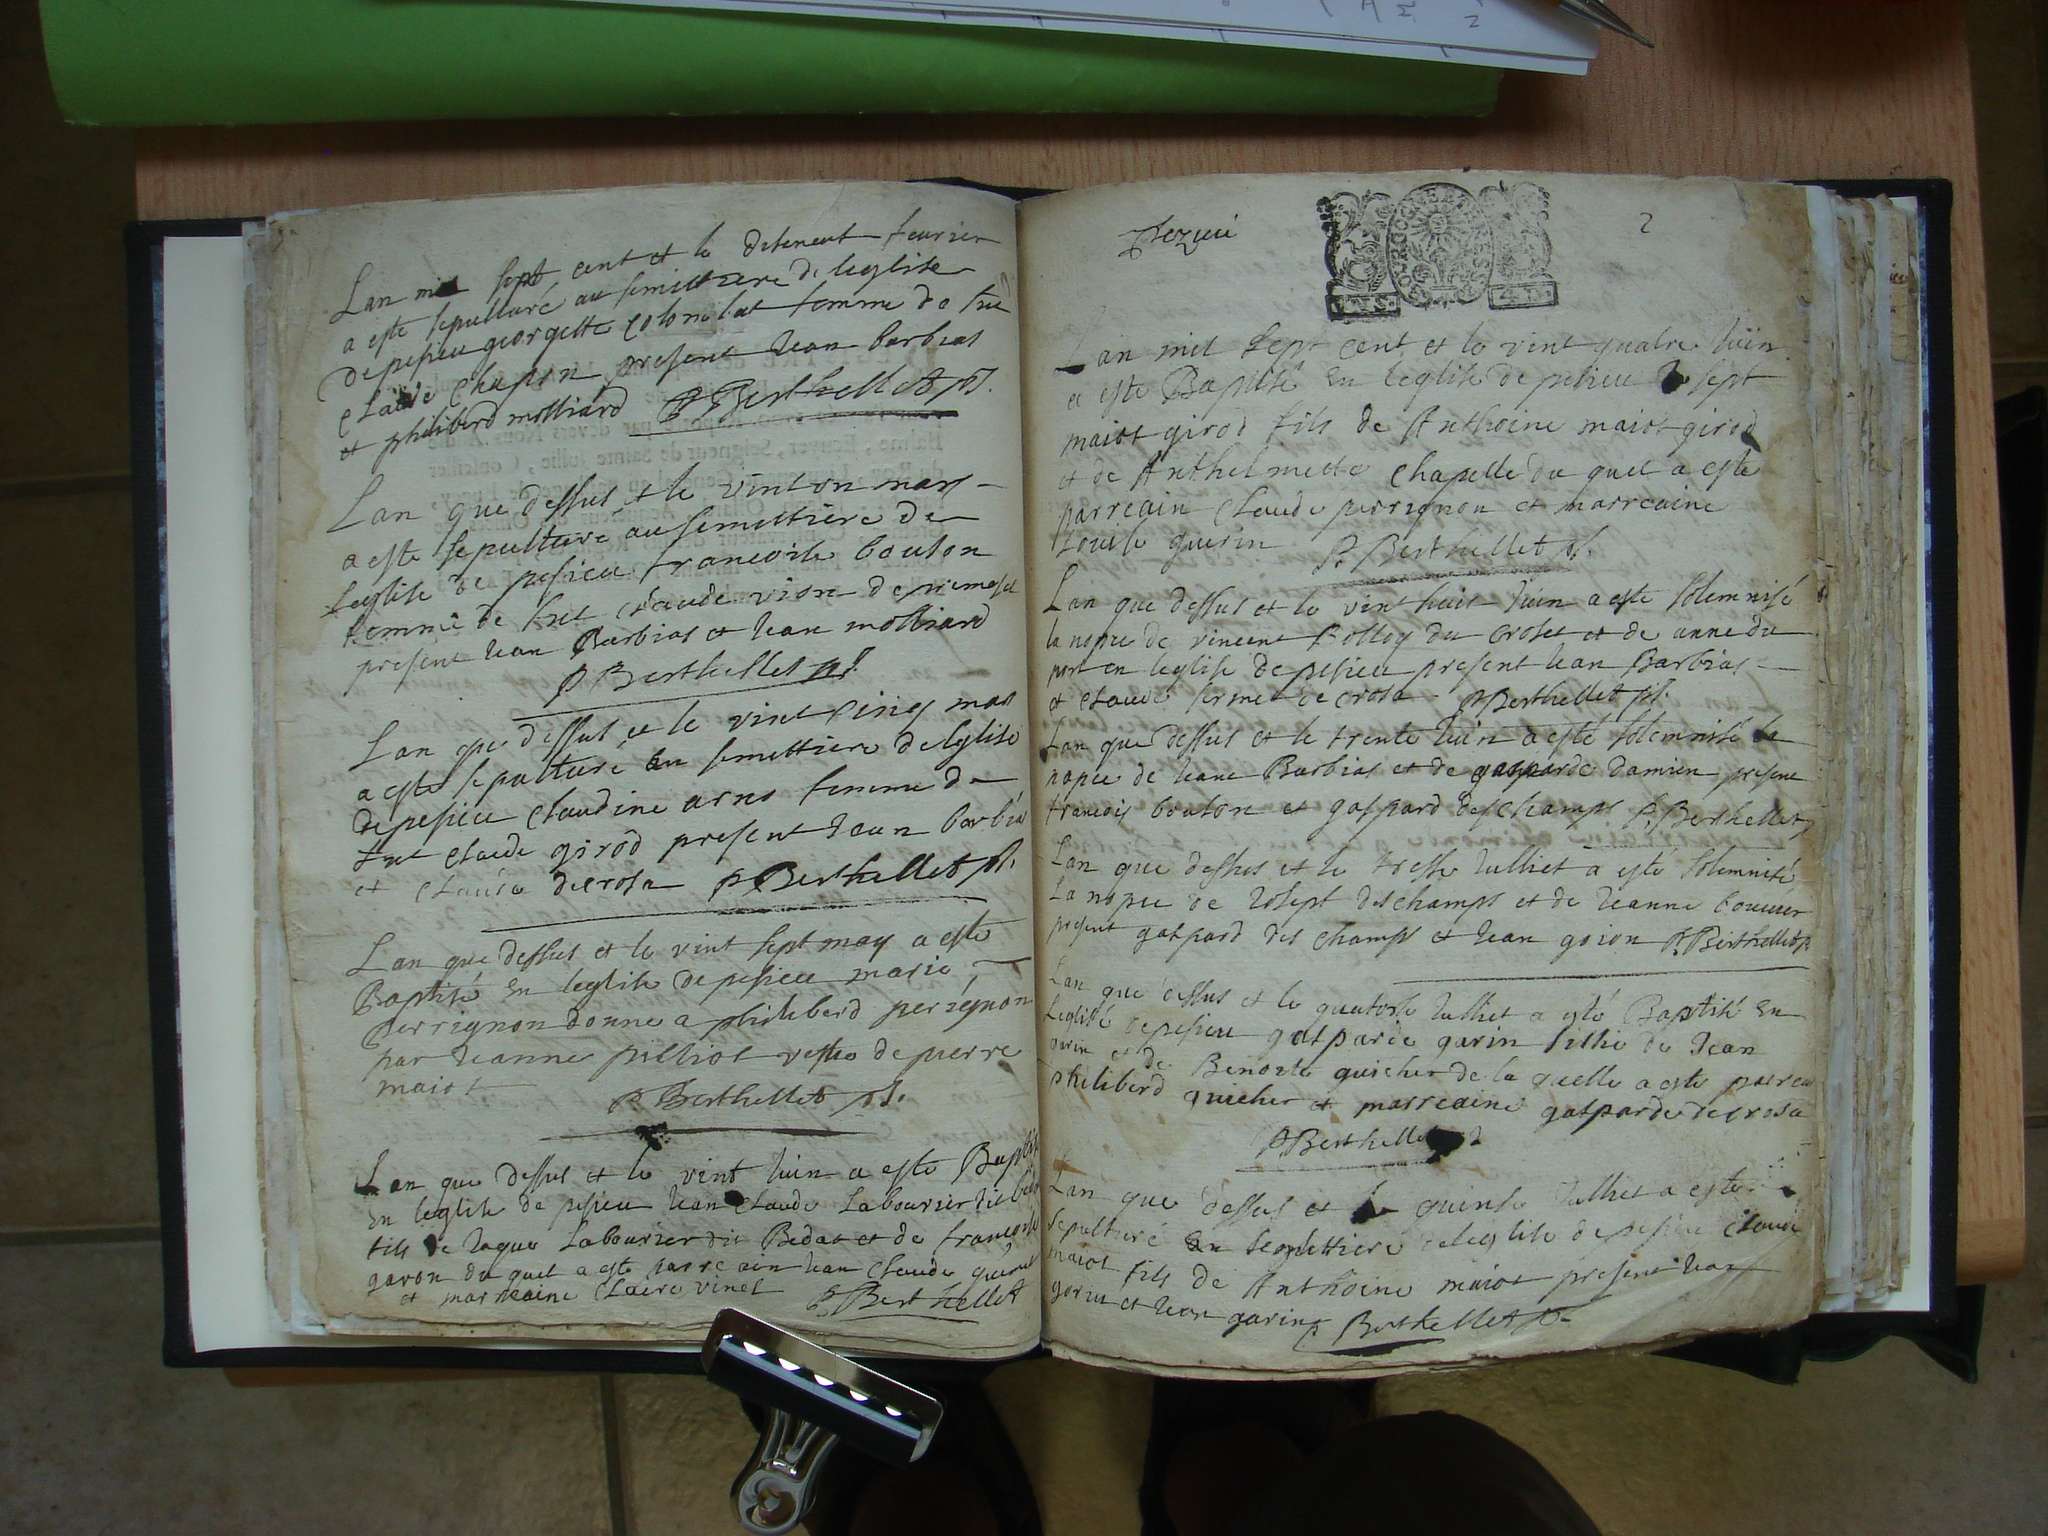 Lan mil sept cent et le disneut feurier
a este sepulturé au semittiere de leglise
de pesieu georgette colombat femme de fut
claude chapon present Jean barbias
et philiberd molliard P Berthellet pt.
Lan que dessus et le vint on mars
a este sepulturé au semittiere de
leglise de pesieu francoise bouson
femme de fut claude vion de
present Jean Barbias et Jean molliard
P Berthellet pt.
Lan que dessus et le vint cinq mar
a este sepulturé au semittiere de leglise
de pesieu claudine arno femme de
fut claude girod present Jean barbia
et claude decrosa P Berthellet pt.
Lan que dessus et le vint sept may a este
Baptisé en leglise de pesieu marie
Perrignon donne a philiberd perrignon
par Jeanne pilliot vesve de pierre
maiot
P Berthellet pt.
Lan que dessus et le vint Juin a este Baptisé
en leglise de pesieu Jean claude Labourier dit
fils de Jaque Labourier dit Bedat et de francoise
garon du quel a este parreain Jean claude
et marreaine claire vinet P Berthellet
2
Lan mil sept cent et le vint quatre Juin
a este Baptisé en leglise de pesieu Josept
maiot girod fils de Anthoine maiot girod
et de Anthelmette chapelle du quel a este
parreain claude perrignon et marreaine
Louise guerin P Berthellet pt.
Lan que dessus et le vint huit Juin a este solemnisé
la nopce de vincent Bolloy du croset et de anne du
port en leglise de pesieu present Jean Barbias
et claude decrosa P Berthellet pt.
Lan que dessus et le trente Juin a este solemnisé la
nopce de Jeane Barbias et de gasparde damien present
francois bouson et gaspard deschamps P. Berthellet
Lan que dessus et le tresse Julliet a esté solemnisé
La nopce de Josept deschamps et de Jeanne bouvier
present gaspard des champs et Jean goion P. Berthellet
Lan que dessus et le quatorse Julliet a esté Baptisé en
Leglise de pesieu gasparde garin fillie de Jean
garin et de Benoiste guicher de la quelle a este parreain
philiberd guicher et marreaine gasparde decrosa
P Berthellet
Lan que dessus et le quinse Julliet a este
sepulturé au semittiere de leglise de pesieu claude
maiot fils de Anthoine maiot present Jean
goiou et Jean garin P Berthellet